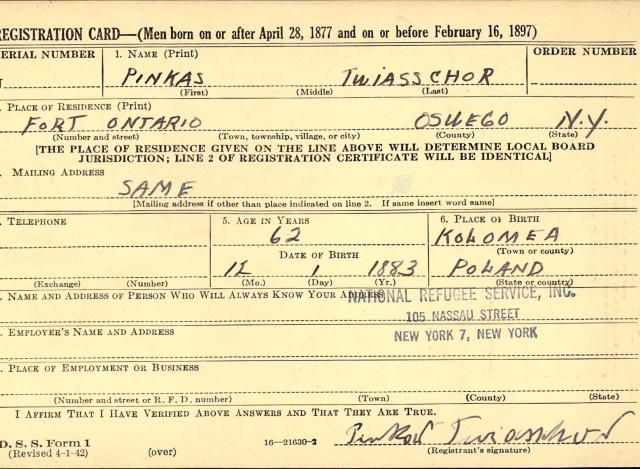 REGISTRATION CARD—(Men born on or after April 28, 1877 and on or before February 16, 1897)
SERIAL NUMBER 1. NAME (Print) ORDER NUMBER
PINKAS TWIASSCHOR
(First) (Middle) (Last)
PLACE OF RESIDENCE (Print)
FORT ONTARIO OSWEGO N.Y.
(Number and street) (Town, township, village, or city) (County) (State)
[THE PLACE OF RESIDENCE GIVEN ON THE LINE ABOVE WILL DETERMINE LOCAL BOARD
JURISDICTION; LINE 2 OF REGISTRATION CERTIFICATE WILL BE IDENTICAL]
MAILING ADDRESS
SAME
[Mailing address if other than place indicated on line 2. If same insert word same]
TELEPHONE 5. AGE IN YEARS 6. PLACE OF BIRTH
62 KOLOMEA
DATE OF BIRTH (Town or county)
1 1883 POLAND
(Exchange) (Number) (Mo.) (Day) (Yr.) (State or country)
NAME AND ADDRESS OF PERSON WHO WILL ALWAYS KNOW YOUR ADDRESS
NATIONAL REFUGEE SERVICE, INC.
105 NASSAU STREET
EMPLOYER'S NAME AND ADDRESS
NEW YORK 7, NEW YORK
PLACE OF EMPLOYMENT OR BUSINESS
(Number and street or R. F. D. number) (Town) (County) (State)
I AFFIRM THAT I HAVE VERIFIED ABOVE ANSWERS AND THAT THEY ARE TRUE.
D. S. S. Form 1
(Revised 4-1-42) (over) 16—21630-2 (Registrant's signature)